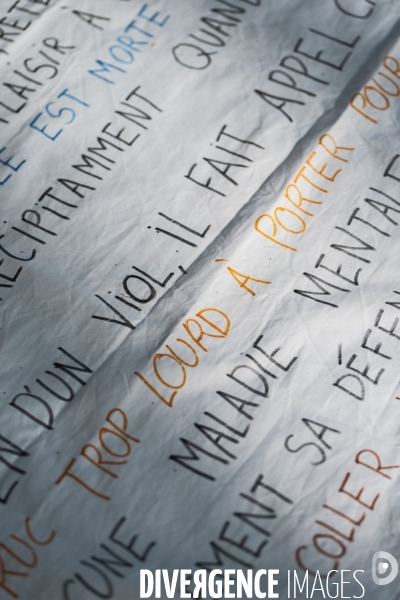 PLAISIR À
EST MORTE
QUAND
PRÉCIPITAMMENT
D'UN VIOL, IL FAIT APPEL
TRUC TROP LOURD À PORTER POUR
MALADIE MENTALE
SA DÉFEN
COLLER
DIVERGENCE IMAGES